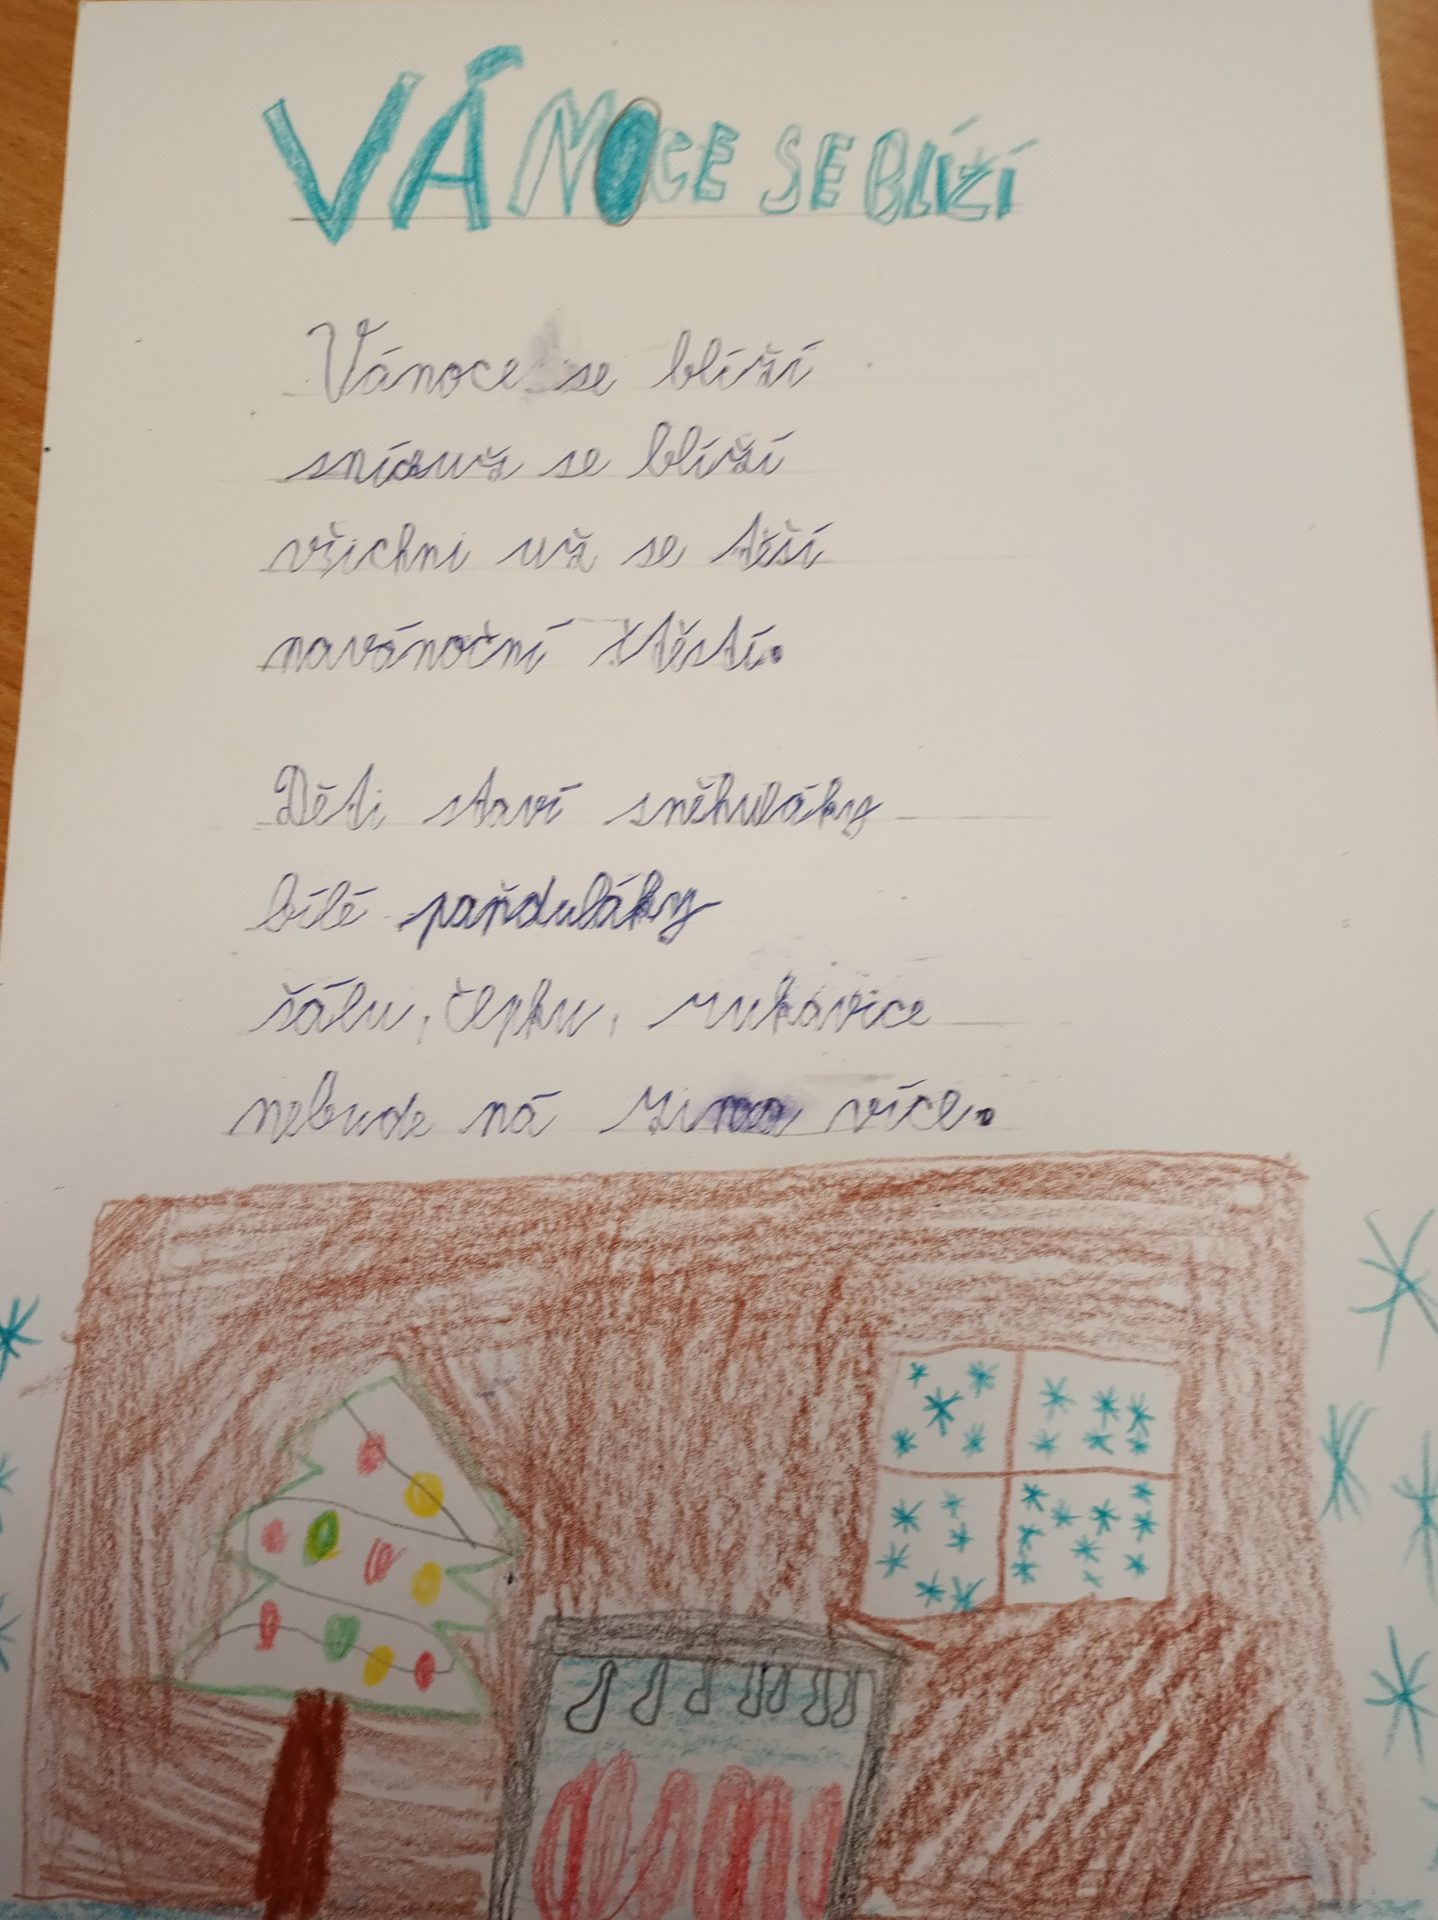 VÁNOCE SE BLÍŽÍ
Vánoce se blíží
sníc už se blíží
všichni už se těší
navánoční štěstí.
Děti staví sněhuláky
bílé paňduláky
šálu, čepku, rukavice
nebude ná zima více.